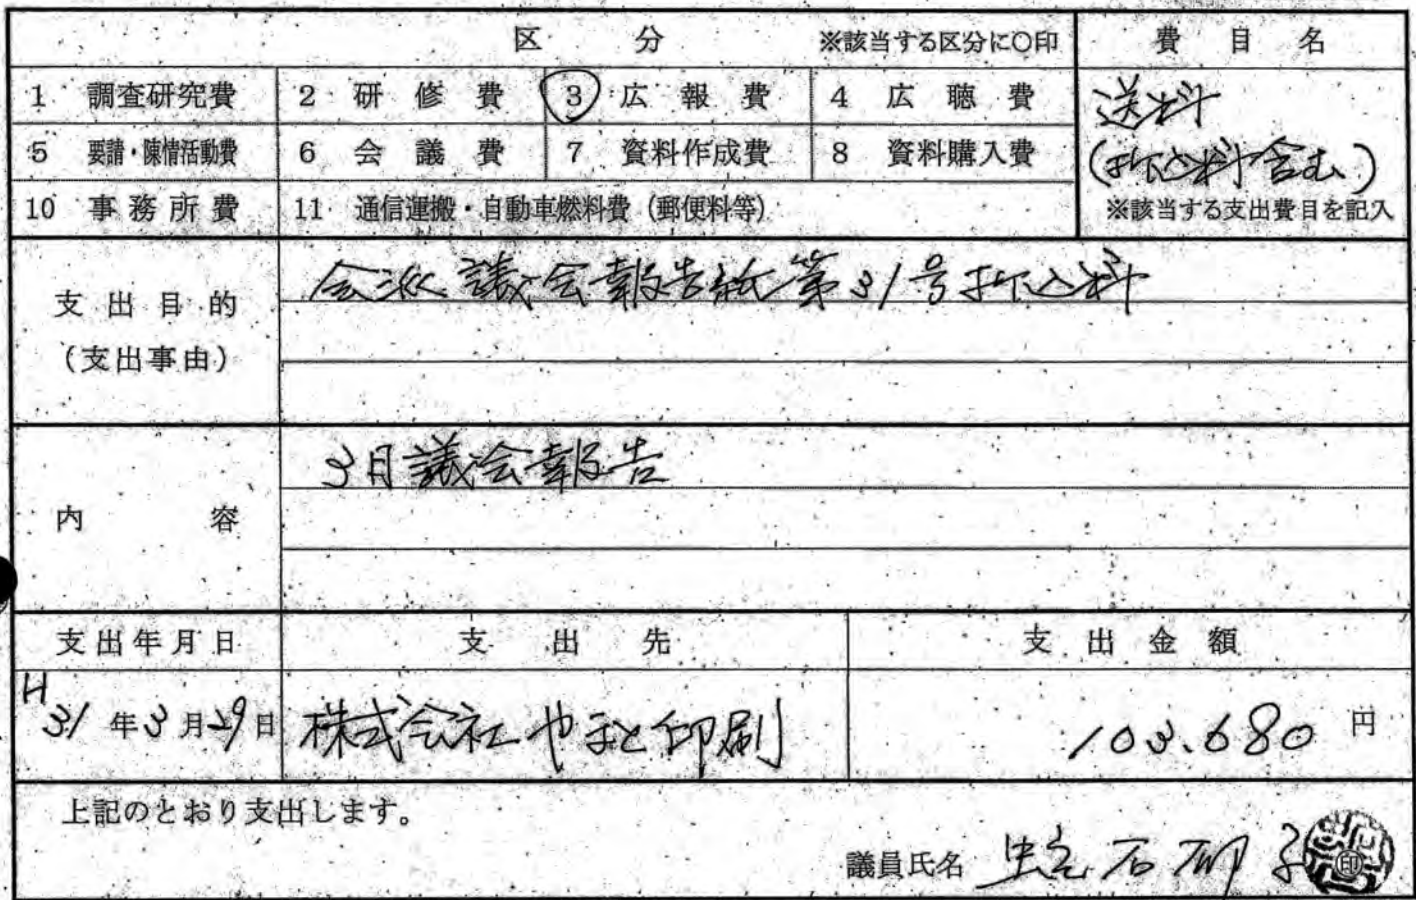 区 分 ※該当する区分に〇印 費目名
1 調査研究費 2 研修費 3 広報費 4 広聴費 送料
5 要請・陳情活動費 6 会議費 7 資料作成費 8 資料購入費 (折込料含む)
10 事務所費 11 通信運搬・自動車燃料費(郵便料等) ※該当する支出費目を記入
支出目的 会派議会報告紙第31号折込料
(支出事由)
内容 3月議会報告
支出年月日 支出先 支出金額
H31年3月29日 株式会社やまと印刷 103.680円
上記のとおり支出します。
議員氏名 石 子 印